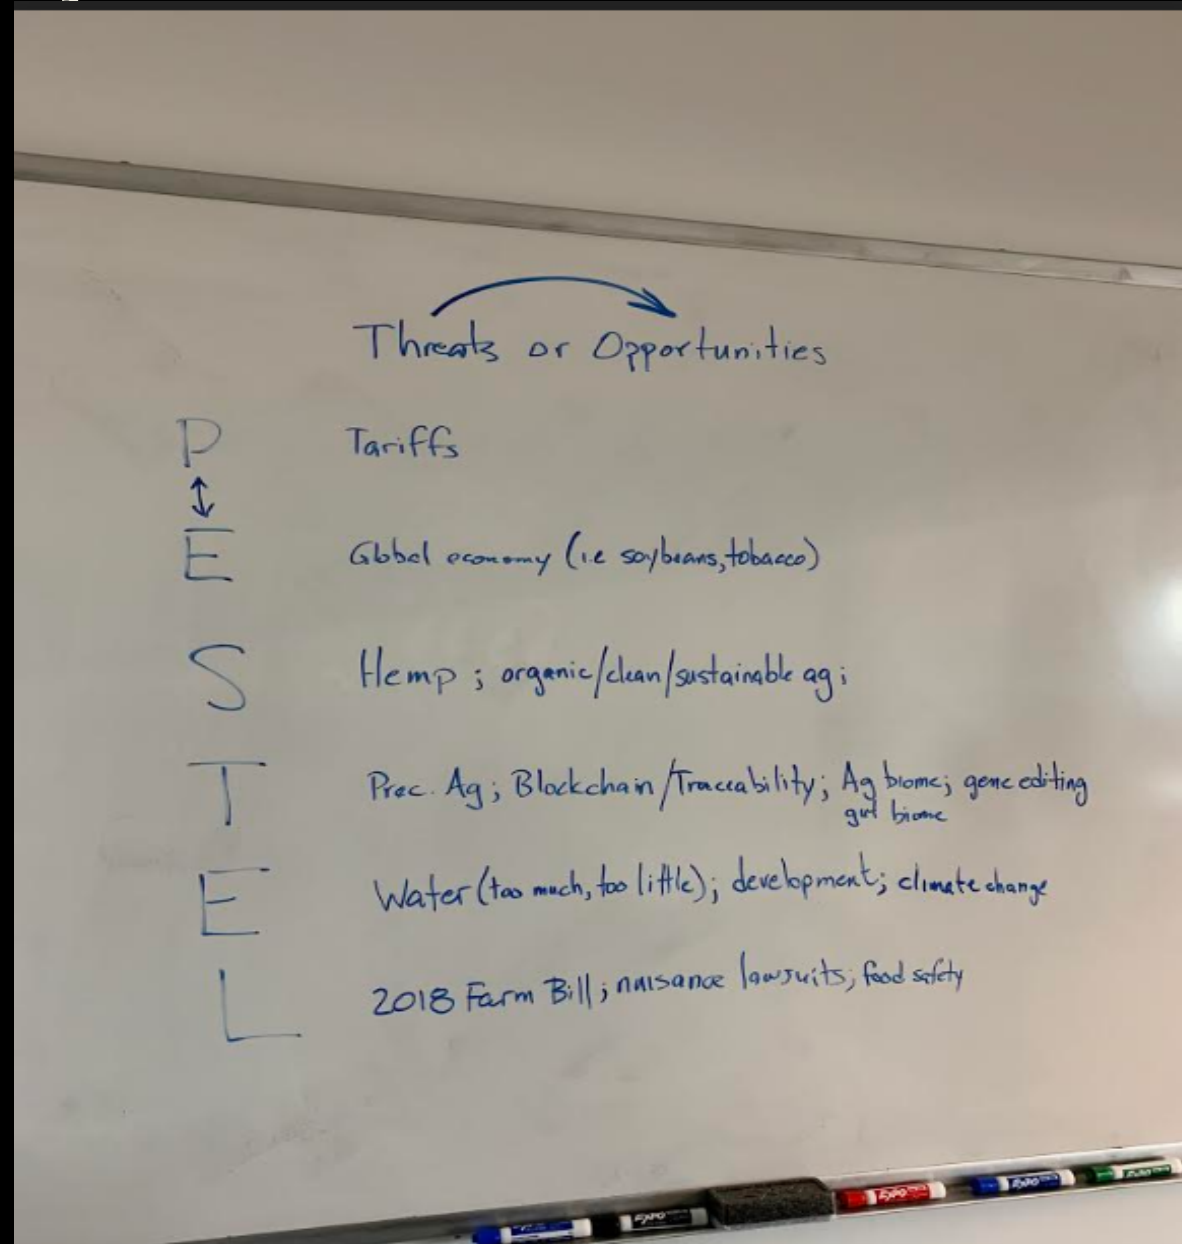 Threats or Opportunities
P Tariffs
E Global economy (i.e soybeans, tobacco)
S Hemp ; organic/clean/sustainable ag ;
T Prec. Ag ; Blockchain/Traceability ; Ag biome ; gene editing
gut biome
E Water (too much, too little) ; development ; climate change
L 2018 Farm Bill ; nuisance lawsuits ; food safety
EXPO EXPO EXPO EXPO EXPO